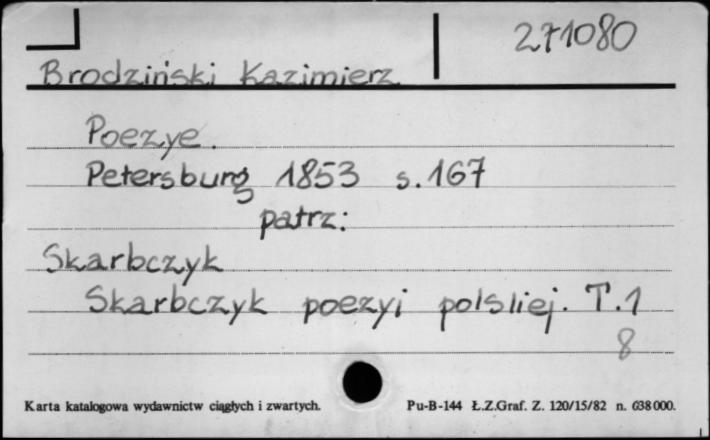 271080
Brodziński Kazimierz
Poezye.
Petersburg 1853 s.167
patrz:
Skarbczyk
Skarbczyk poezyi polskiej. T.1
8
Karta katalogowa wydawnictw ciągłych i zwartych. Pu-B-144 Ł.Z.Graf. Z. 120/15/82 n. 638 000.